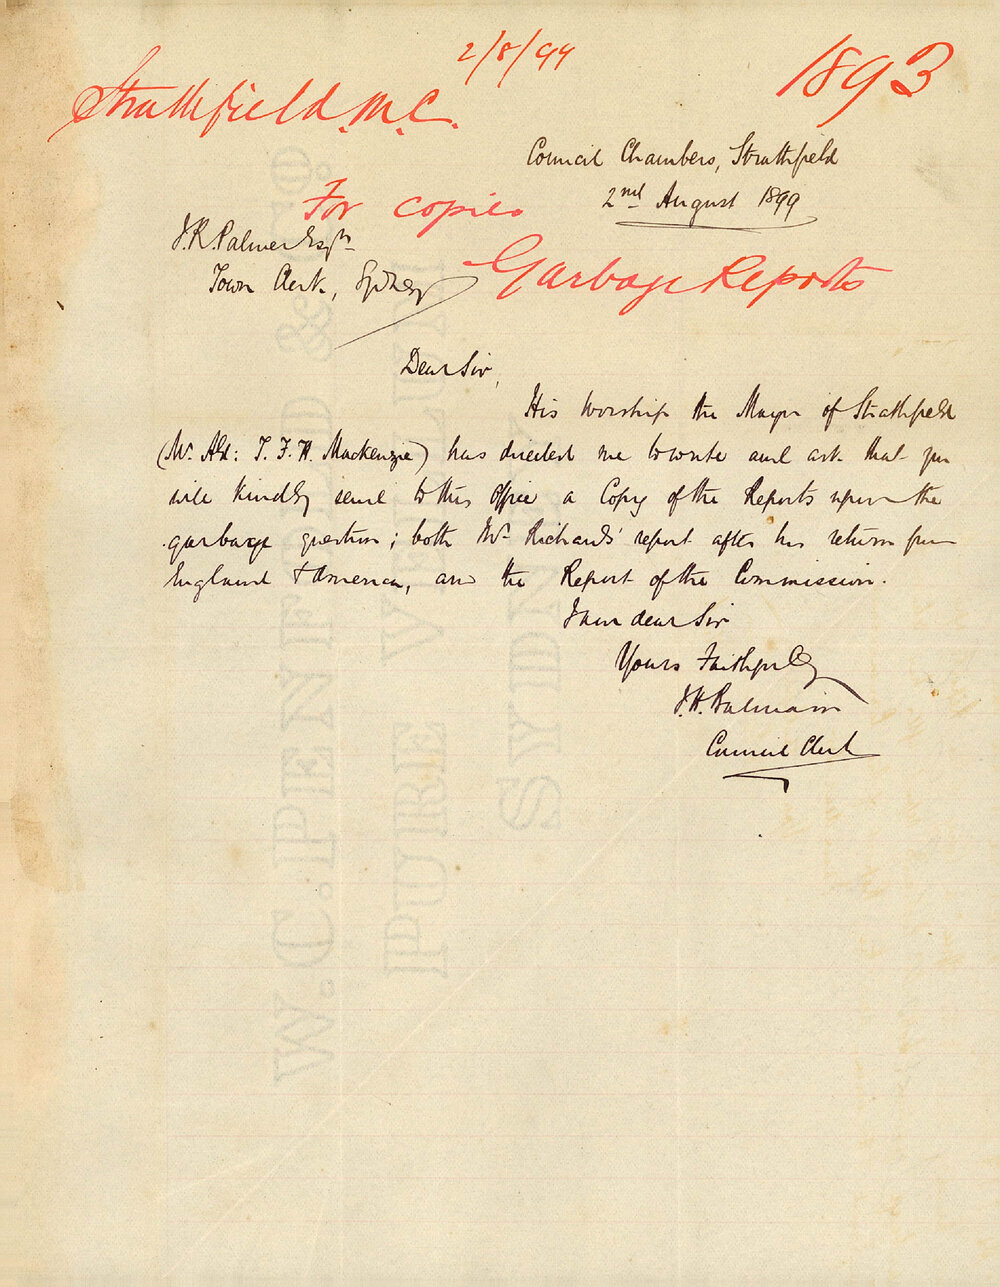 2/8/99
1893
Strathfield. M. C.
Council Chambers, Strathfield
2nd August 1899
For copies
J. R. Palmer Esqre
Town Clerk, Sydney
Garbage Reports
Dear Sir,
His Worship the Mayor of Strathfield
(Mr. Ald: T. F. H. Mackenzie) has directed me to write and ask that you
will kindly send to this office a Copy of the Reports upon the
garbage question; both Mr Richards' report after his return from
England & America, and the Report of the Commission.
I am dear Sir
Yours Faithfully
J. H. Balmain
Council Clerk
W. C. PENFOLD & Co
PURE VELLUM
SYDNEY